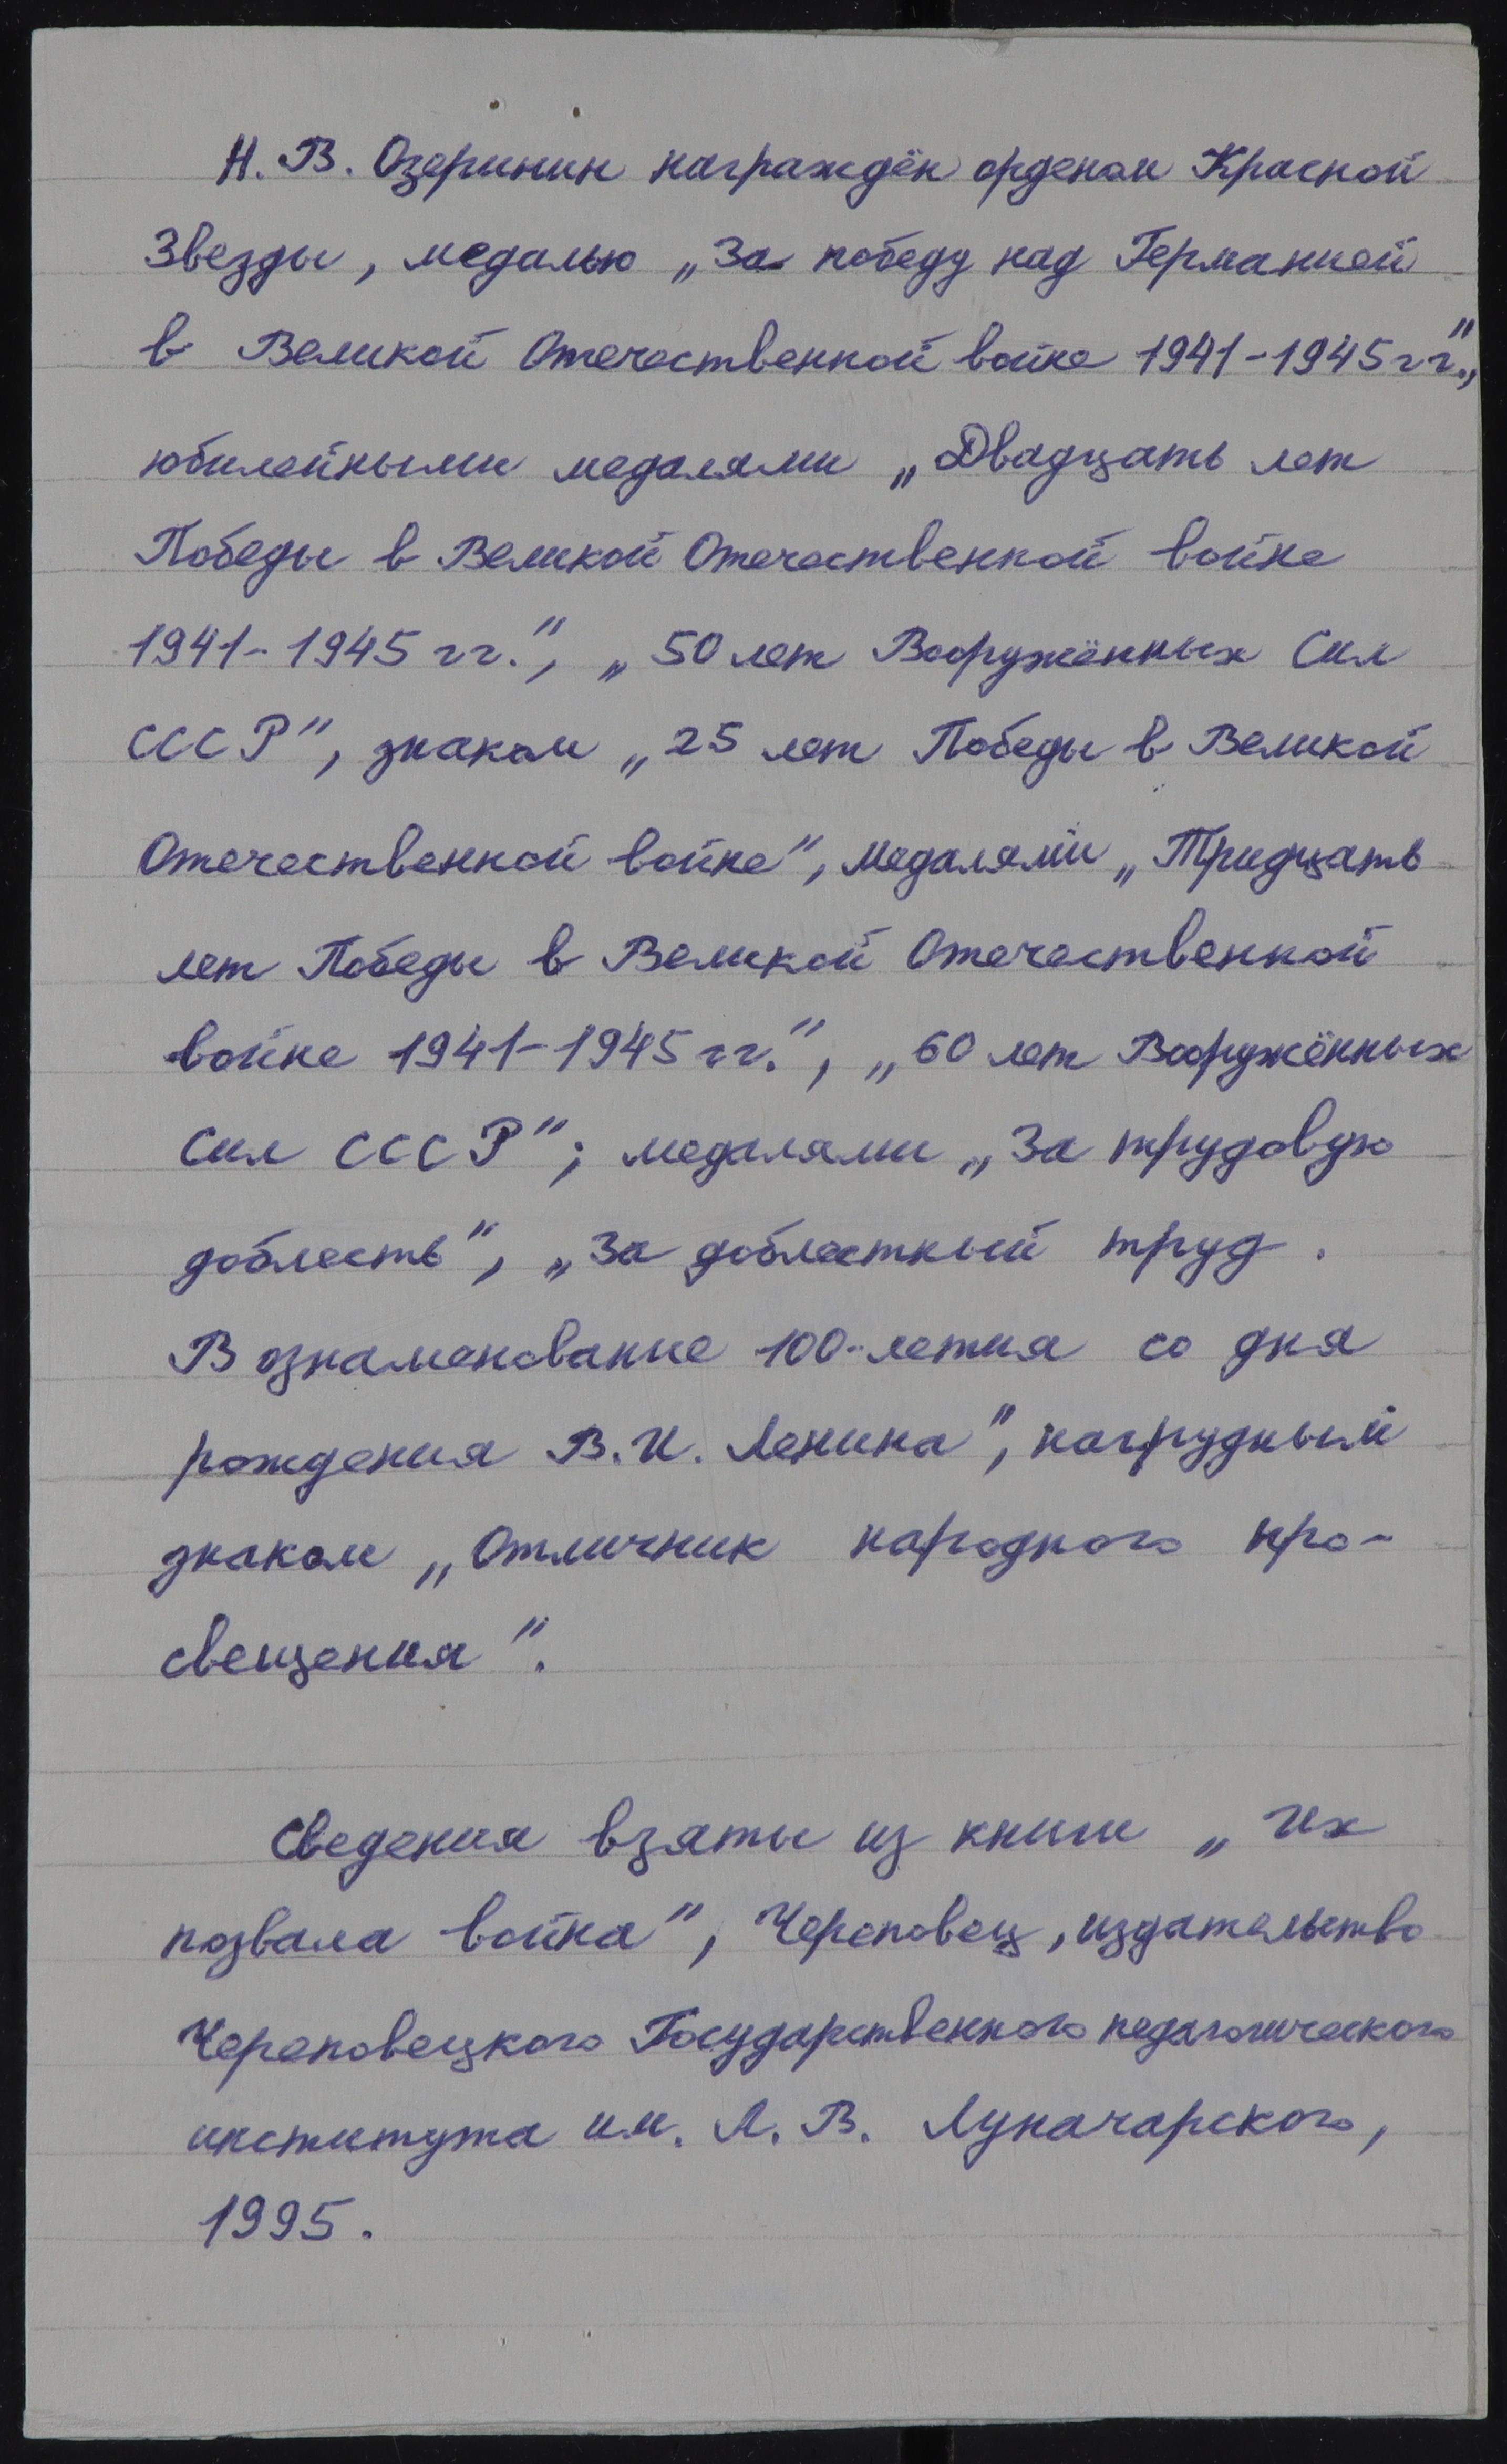 Н. В. Озеринин награждён орденом Красной
Звезды, медалью „За победу над Германией
в Великой Отечественной войне 1941-1945 гг.",
юбилейными медалями „Двадцать лет
Победы в Великой Отечественной войне
1941-1945 гг.", „50 лет Вооружённых Сил
СССР", знаком „25 лет Победы в Великой
Отечественной войне", медалями „Тридцать
лет Победы в Великой Отечественной
войне 1941-1945 гг.", „60 лет Вооружённых
Сил СССР"; медалями „За трудовую
доблесть", „За доблестный труд.
В ознаменование 100-летия со дня
рождения В. И. Ленина", нагрудным
знаком „Отличник народного про-
свещения".
Сведения взяты из книги „Их
позвала война", Череповец, издательство
Череповецкого Государственного педагогического
института им. А. В. Луначарского,
1995.